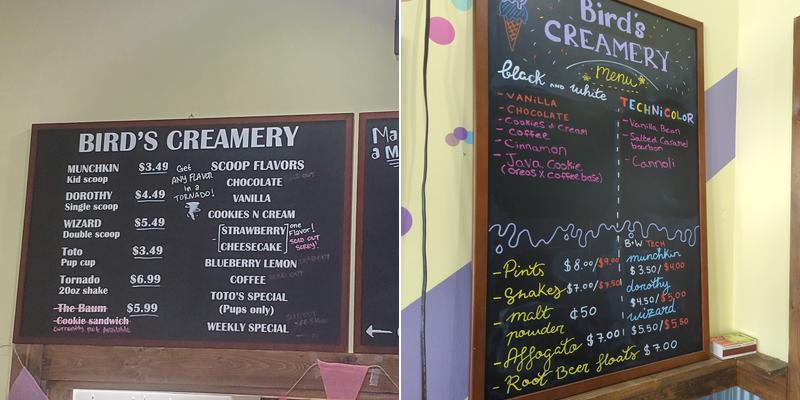 BIRD'S CREAMERY
MUNCHKIN $3.49
Kid scoop
DOROTHY $4.49
Single scoop
WIZARD $5.49
Double scoop
Toto $3.49
Pup cup
Tornado $6.99
20oz shake
The Baum $5.99
Cookie sandwich
Currently not Available
Get
ANY FLAVOR
in a
TORNADO!
SCOOP FLAVORS
CHOCOLATE
VANILLA
COOKIES N CREAM
STRAWBERRY
CHEESECAKE
one
Flavor!
SOLD OUT
SORRY!
BLUEBERRY LEMON
COFFEE
TOTO'S SPECIAL
(Pups only)
WEEKLY SPECIAL
Bird's
CREAMERY
menu
black AND white
- VANILLA
- CHOCOLATE
- Cookies & Cream
- Coffee
- Cinnamon
- Java Cookie
(Oreos X Coffee base)
TECHNiCOLOR
- Vanilla Bean
- Salted Caramel
bourbon
- Cannoli
- Pints $8.00/$9.00
- Shakes $7.00/$7.50
- malt ¢50
powder
- Affogato $7.00
- Root Beer floats $7.00
B+W TECH
munchkin
$3.50/$4.00
dorothy
$4.50/$5.00
wizard
$5.50/$5.50